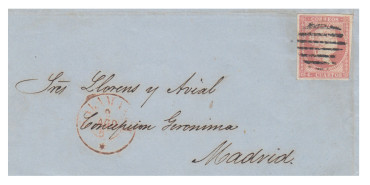 Sres Llorens y Avial
Concepcion Geronima
Madrid.